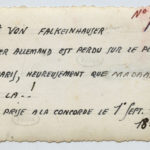 No
VON FALKEINHAUSER
ER ALLEMAND EST PERDU SUR LE P
ARIS, HEUREUSEMENT QUE MADAM
LA __!
PRISE A LA CONCORDE LE 1e SEPT.
18